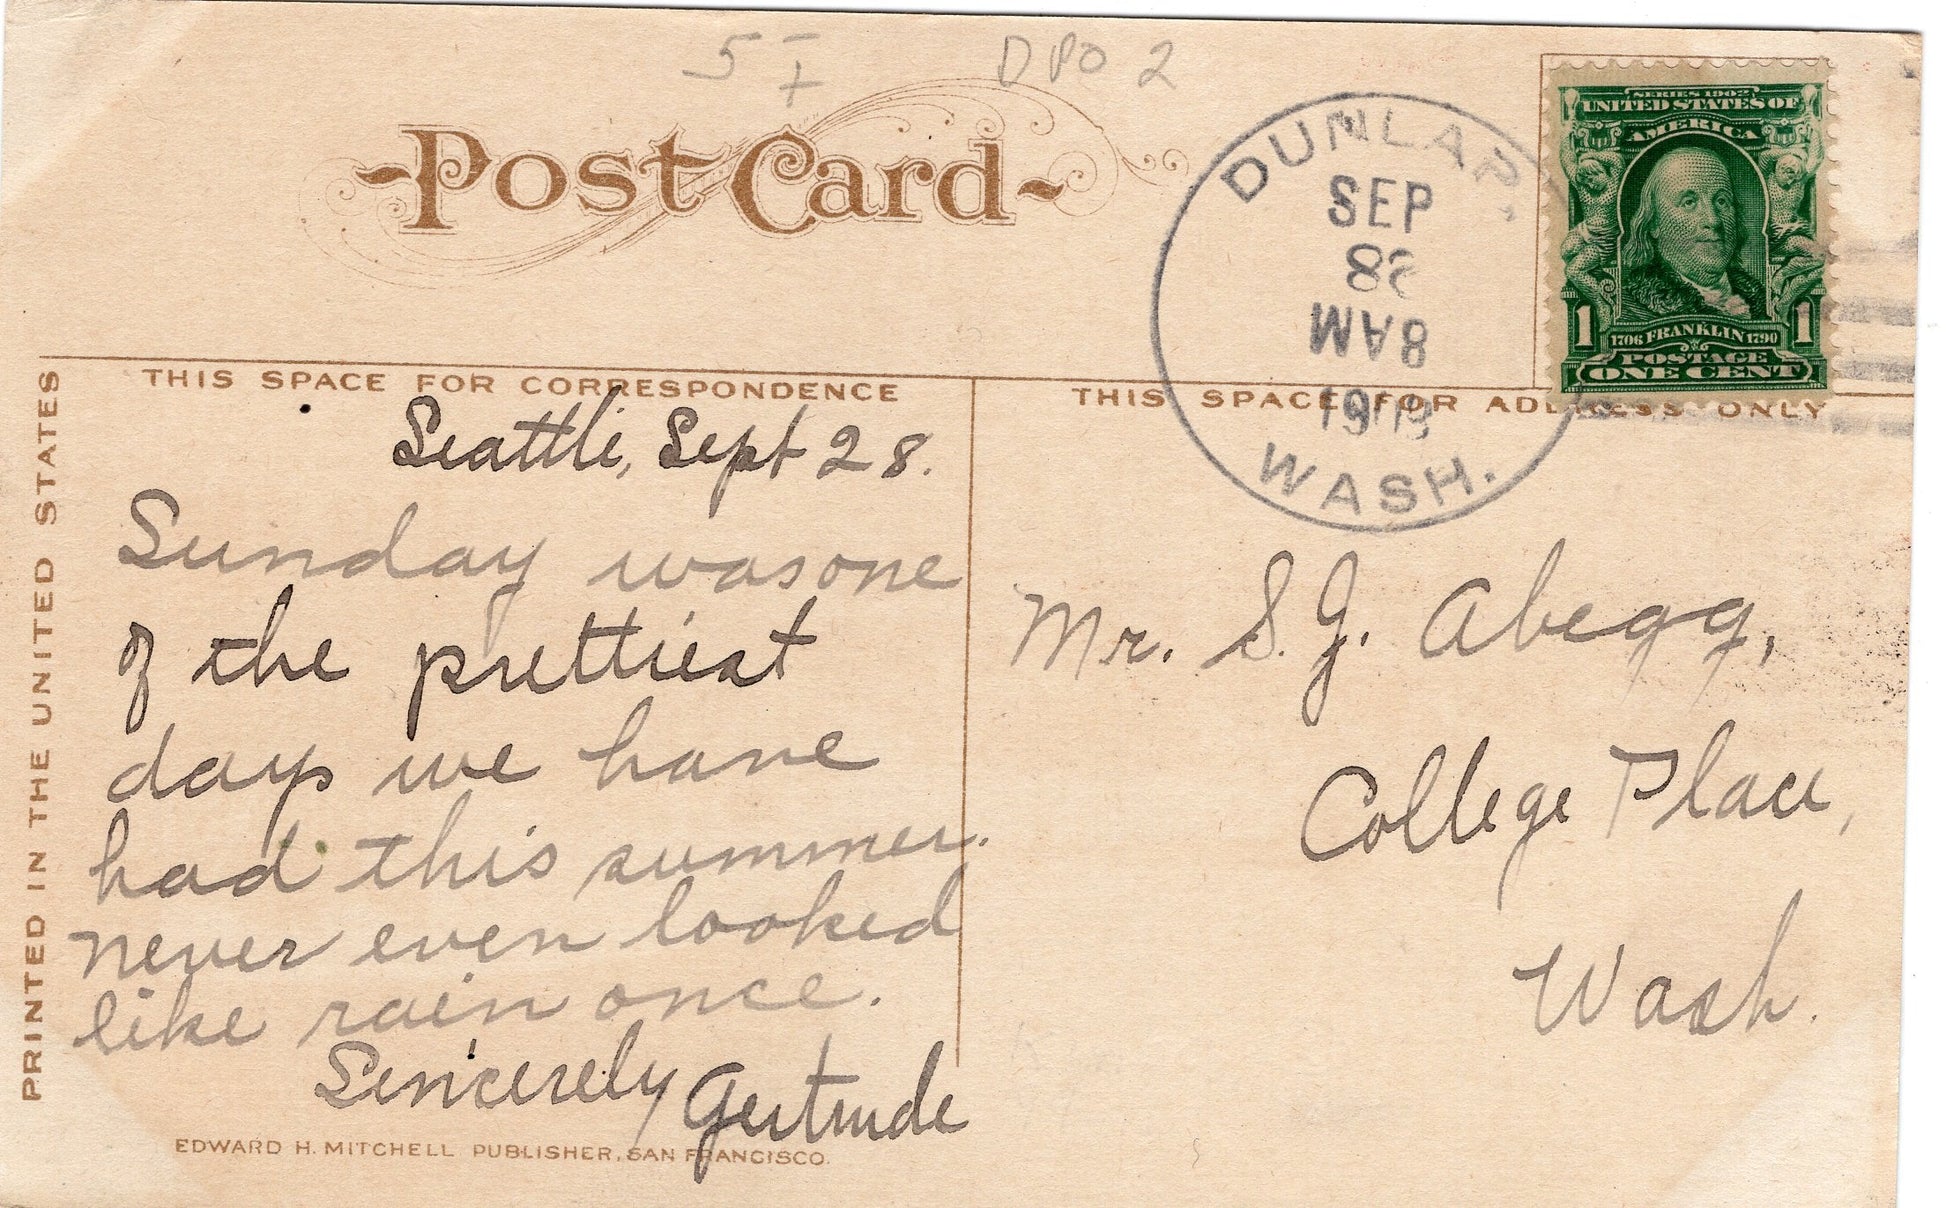 5 -
+
DPO 2
Post Card
DUNLAP,
SEP
28
8 AM
WASH.
SERIES 1902
UNITED STATES OF
AMERICA
1
1
1706 FRANKLIN 1790
POSTAGE
ONE CENT
PRINTED IN THE UNITED STATES
THIS SPACE FOR CORRESPONDENCE
Seattle, Sept 28.
Sunday was one
of the prettiest
days we have
had this summer.
never even looked
like rain once.
Sincerely Gertrude
EDWARD H. MITCHELL PUBLISHER, SAN FRANCISCO.
THIS SPACE FOR ADDRESS ONLY
Mr. S. G. Abegg,
College Place,
Wash.